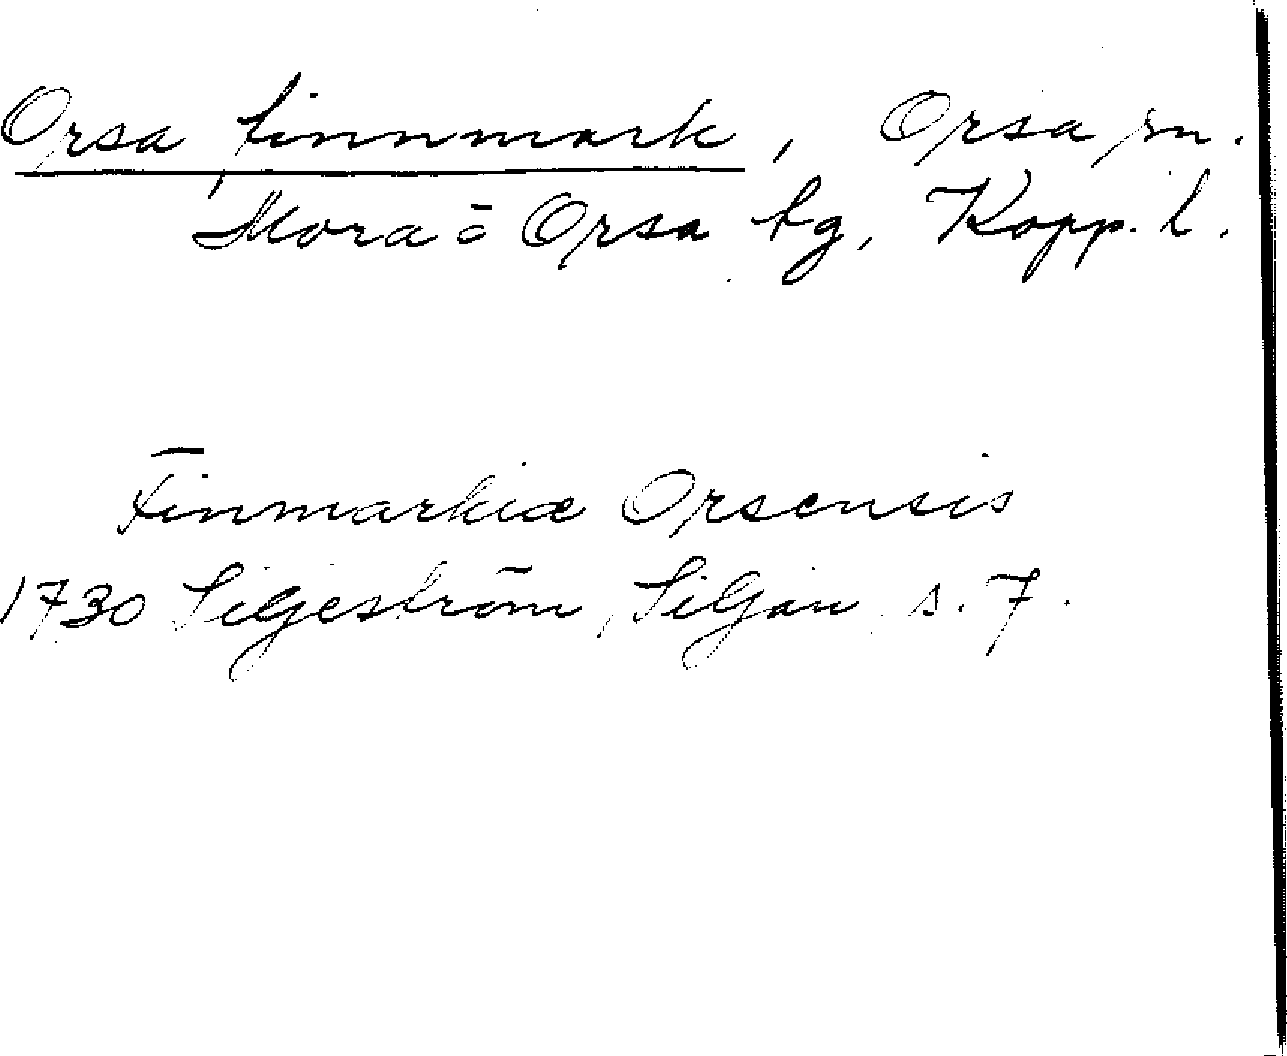 Orsa finnmark, Orsa sn.
Mora ō Orsa tg, Kopp. l.
Finmarkiæ Orsensis
1730 Siljeström, Siljan s. 7.